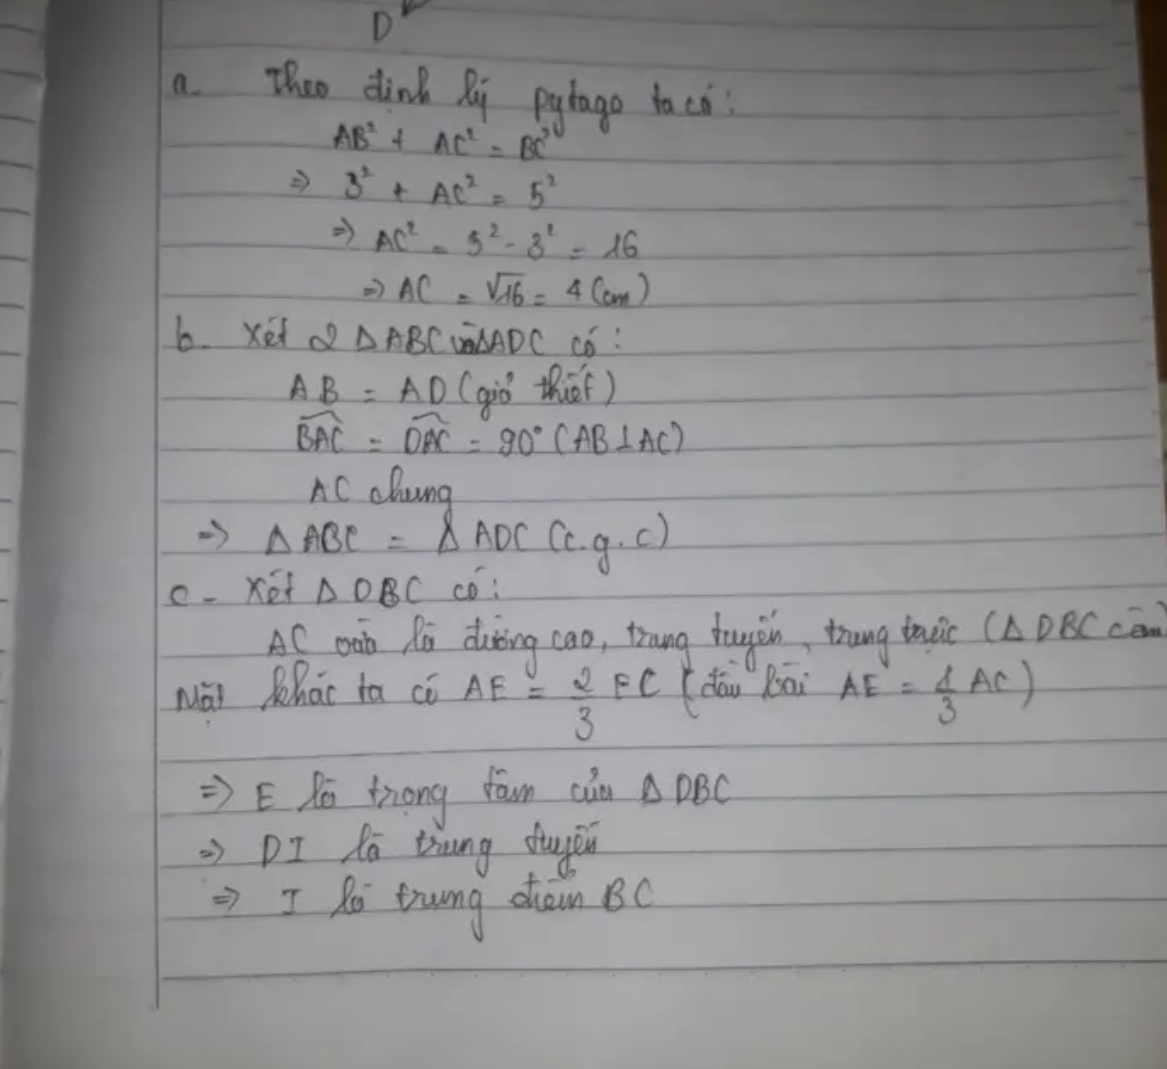 D
a. Theo định lý pytago ta có:
AB² + AC² = BC²
=> 3² + AC² = 5²
=> AC² = 5² - 3² = 16
=> AC = √16 = 4 (cm)
b. Xét 2 Δ ABC và ΔADC có:
AB = AD (giả thiết)
BAC = DAC = 90° (AB ⊥ AC)
AC chung
=> Δ ABC = Δ ADC (c.g.c)
c - Xét Δ DBC có:
AC vừa là đường cao, trung tuyến, trung trực (Δ DBC cân
Mặt khác ta có AE = 2/3 EC (đầu bài AE = 1/3 AC)
=> E là trọng tâm của Δ DBC
=> DI là trung tuyến
=> I là trung điểm BC